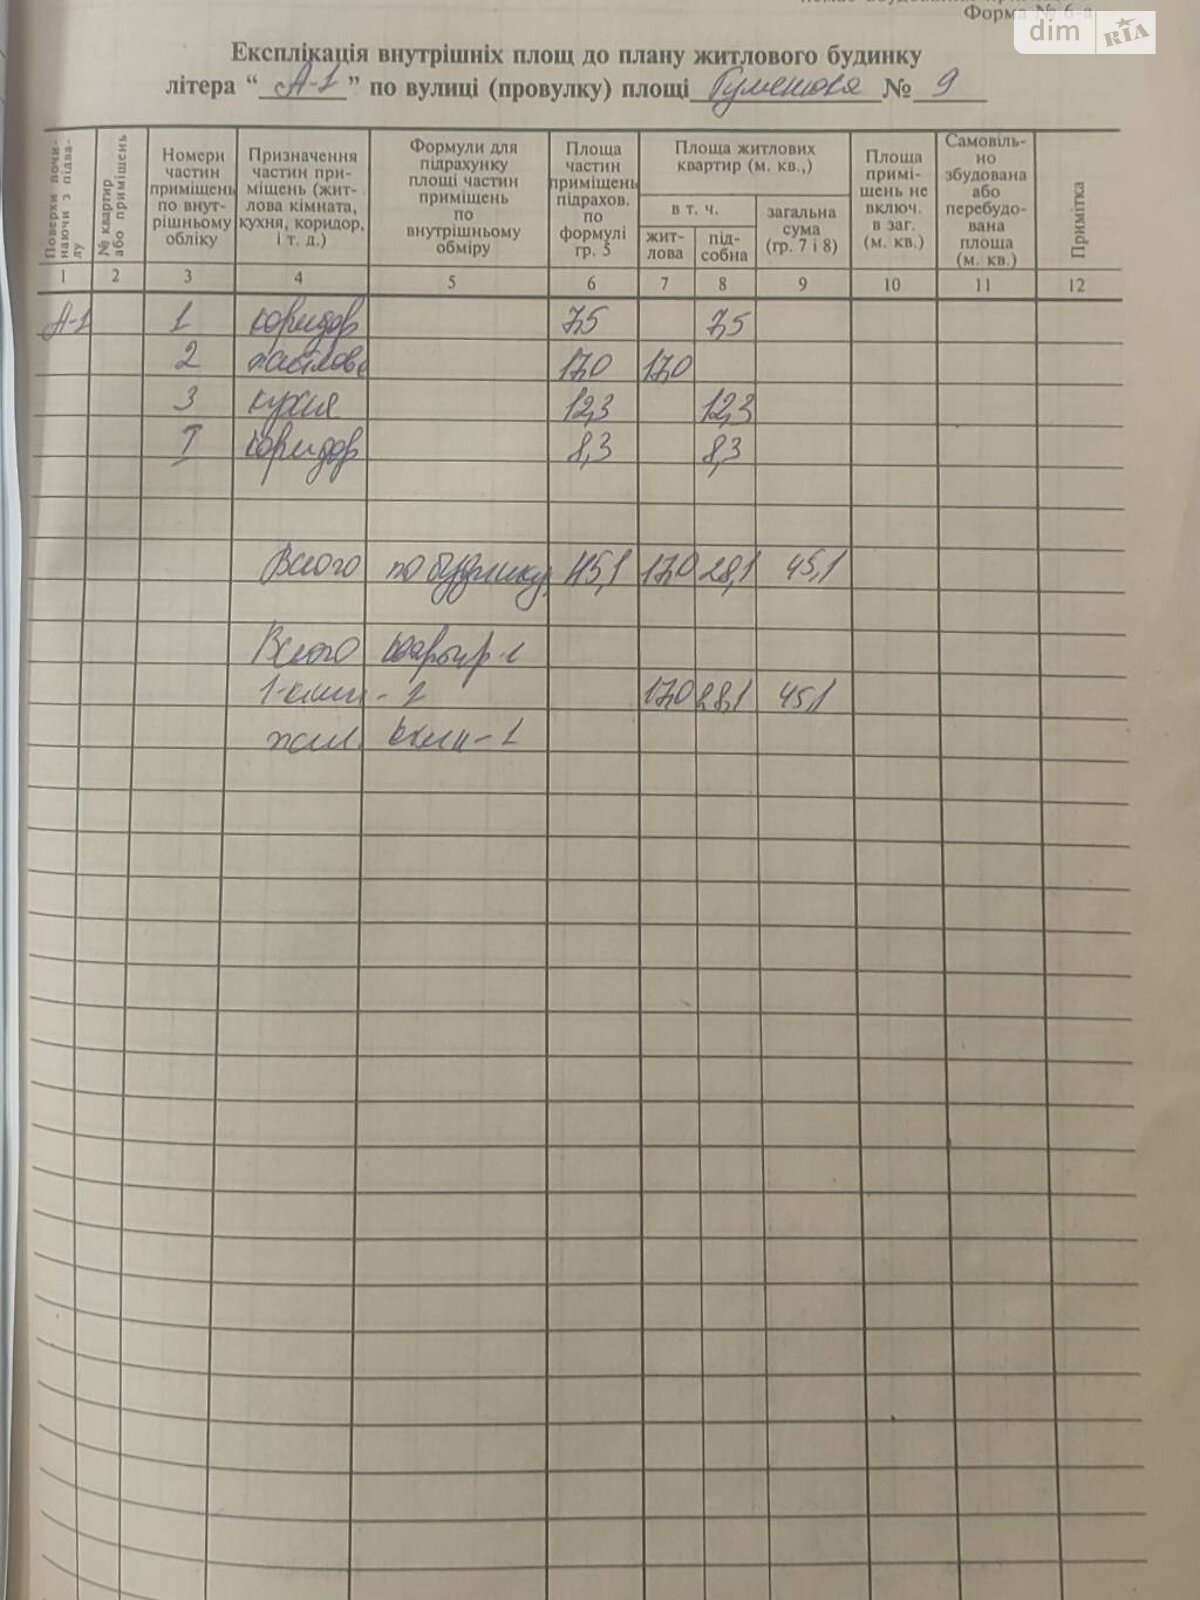 Форма № 6-а
dim RIA
Експлікація внутрішніх площ до плану житлового будинку
літера “ А-1 ” по вулиці (провулку) площі № 9
Поверхи почи-
наючи з підва-
лу
№ квартир
або приміщень
Номери
частин
приміщень
по внут-
рішньому
обліку
Призначення
частин при-
міщень (жит-
лова кімната,
кухня, коридор,
і т. д.)
Формули для
підрахунку
площі частин
приміщень
по
внутрішньому
обміру
Площа
частин
приміщень
підрахов.
по
формулі
гр. 5
Площа житлових
квартир (м. кв.,)
в т. ч.
жит-
лова
під-
собна
загальна
сума
(гр. 7 і 8)
Площа
примі-
щень не
включ.
в заг.
(м. кв.)
Самовіль-
но
збудована
або
перебудо-
вана
площа
(м. кв.)
Примітка
1 2 3 4 5 6 7 8 9 10 11 12
А-1 1 коридор 7,5 7,5
2 житлова 17,0 17,0
3 кухня 12,3 12,3
I коридор 8,3 8,3
Всього по будинку 45,1 17,0 28,1 45,1
Всього квартир-1
1-кімн - 1 17,0 28,1 45,1
жил. кімн - 1